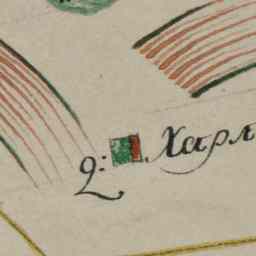 2: Харл